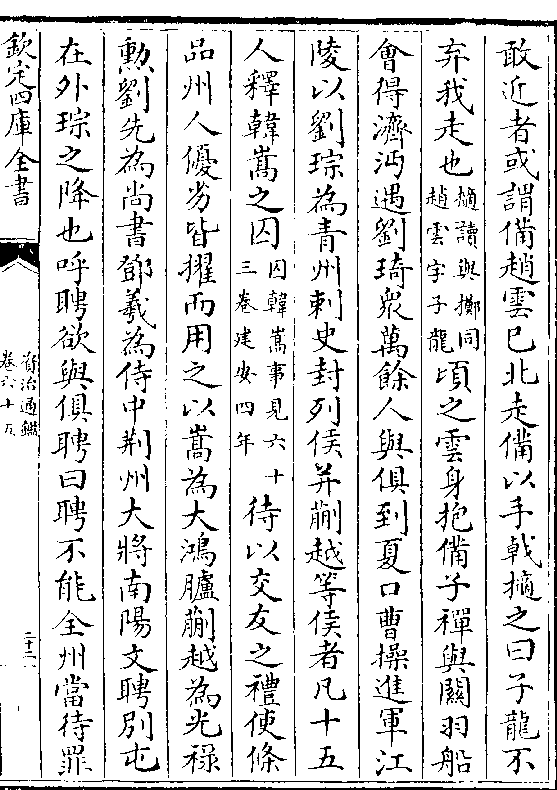 敢近者或謂備趙雲已北走備以手戟擿之曰子龍不
弃我走也擿讀與擲同趙雲字子龍頃之雲身抱備子禪與關羽船
會得濟沔遇劉琦衆萬餘人與俱到夏口曹操進軍江
陵以劉琮為青州刺史封列侯并蒯越等侯者凡十五
人釋韓嵩之囚囚韓嵩事見六十三卷建安四年待以交友之禮使條
品州人優劣皆擢而用之以嵩為大鴻臚蒯越為光祿
勲劉先為尚書鄧羲為侍中荆州大將南陽文聘别屯
在外琮之降也呼聘欲與俱聘曰聘不能全州當待罪
欽定四庫全書
資治通鑑
卷六十五
二十二